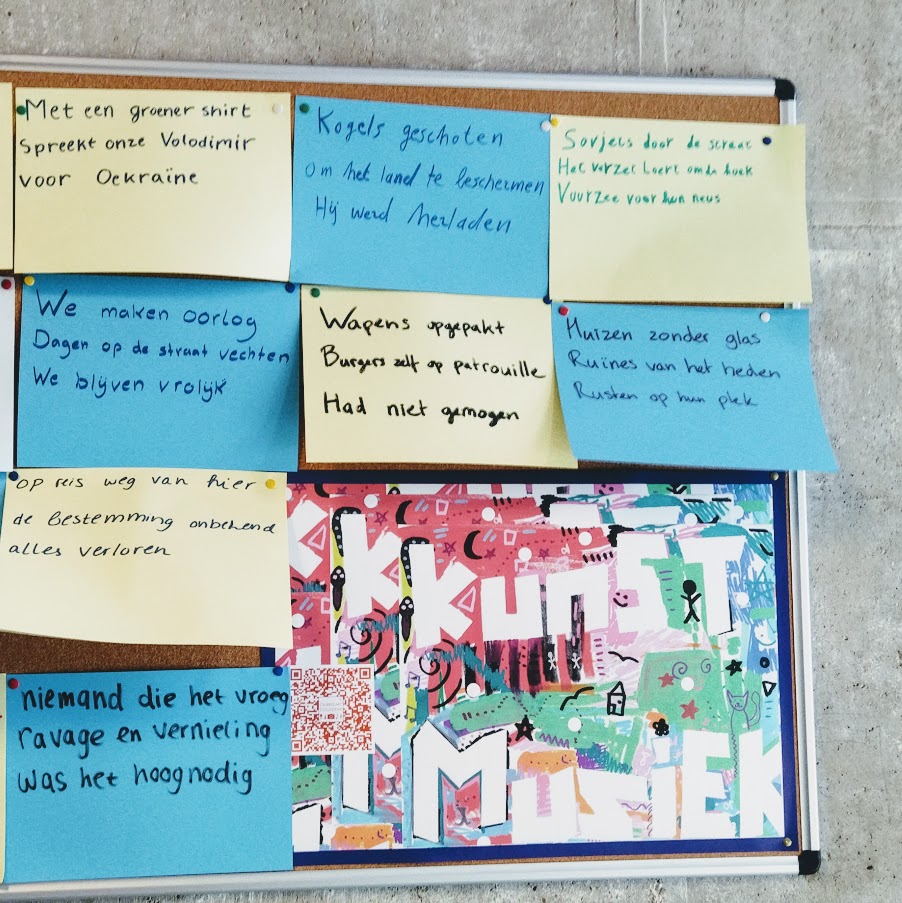 Met een groener shirt
Spreekt onze Volodimir
voor Oekraïne
Kogels geschoten
Om het land te beschermen
Hij werd herladen
Sovjets door de straat
Het verzet loert om de hoek
Vuurzee voor hun neus
We maken oorlog
Dagen op de straat vechten
We blijven vrolijk
Wapens opgepakt
Burgers zelf op patrouille
Had niet gemogen
Huizen zonder glas
Ruïnes van het heden
Rusten op hun plek
op reis weg van hier
de Bestemming onbekend
alles verloren
niemand die het vroeg
ravage en vernieling
was het hoognodig
KUNST
MUSIEK